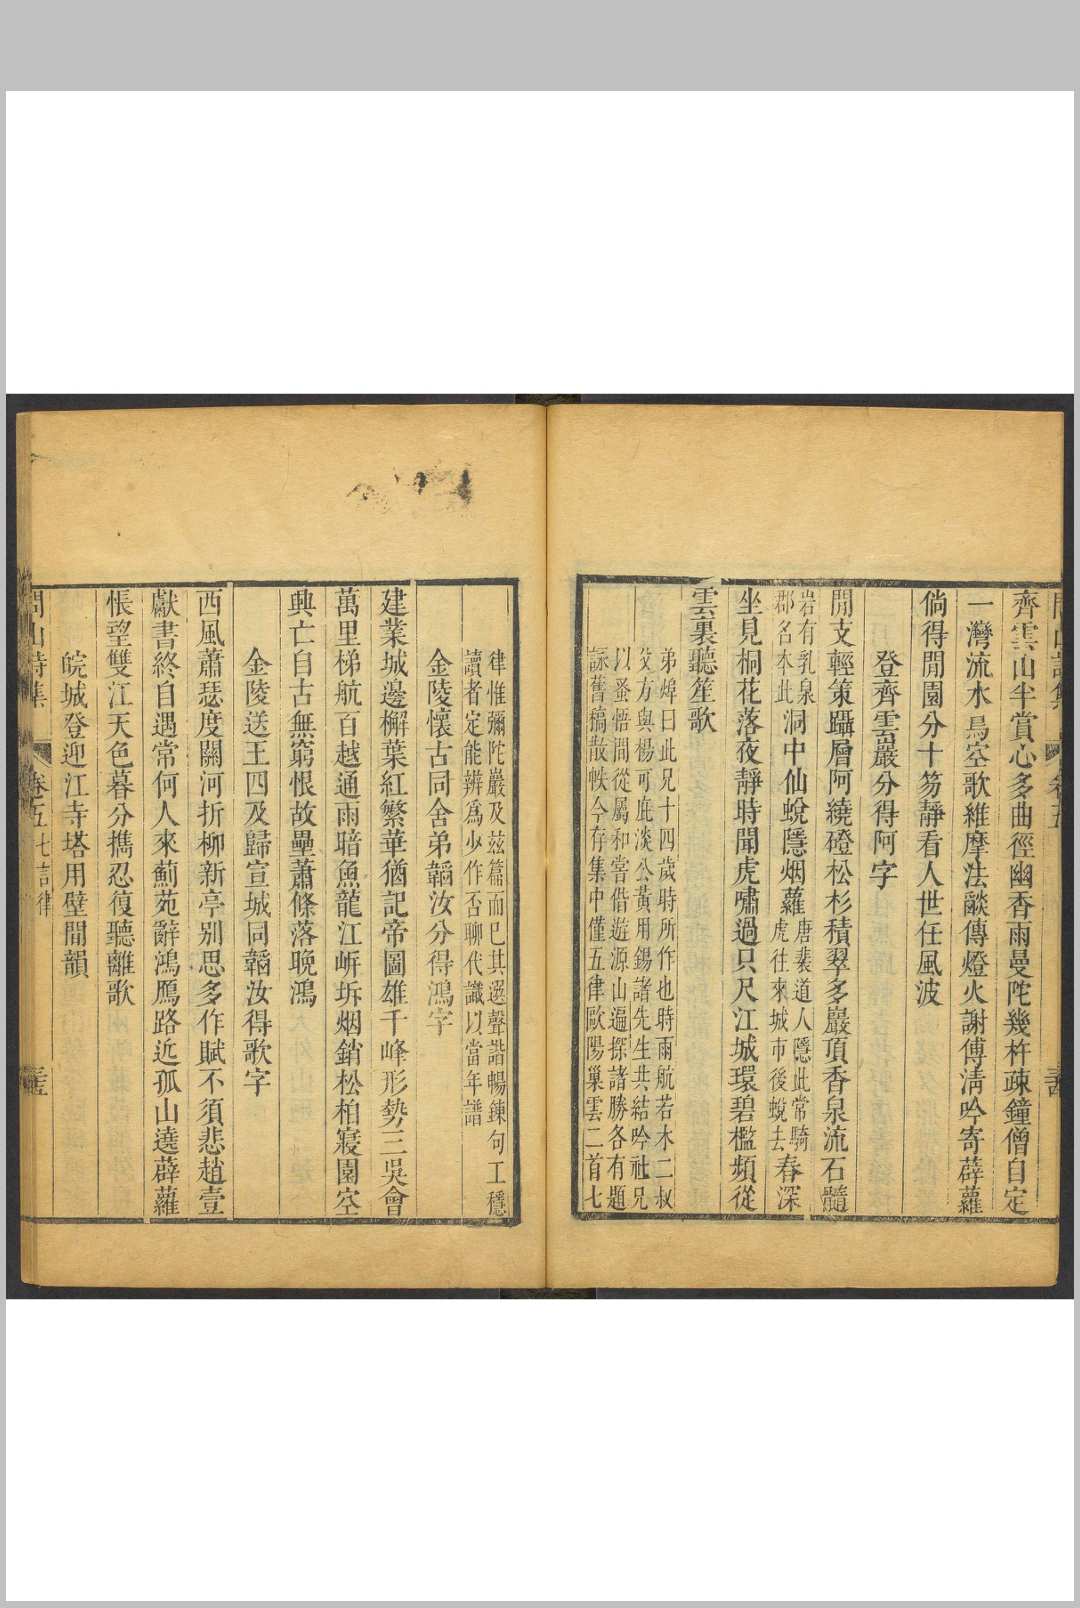 齊雲山半賞心多曲徑幽香雨曼陀幾杵疎鐘僧自定
一灣流水鳥空歌維摩法㗖傳燈火謝傅清吟寄薜蘿
倘得閒園分十笏靜看人世任風波
登齊雲巖分得阿字
閒支輕策躡層阿繞磴松杉積翠多巖頂香泉流石髓
岩有乳泉
郡名本此
洞中仙蛻隱烟蘿
唐裴道人隱此常騎
虎往來城市後蛻去
春深
坐見桐花落夜靜時聞虎嘯過只尺江城環碧檻頻從
雲裏聽笙歌
弟焯曰此兄十四歲時所作也時雨航若木二叔
父方與楊可庇淡公黃用錫諸先生共結吟社兄
以蚤悟間從屬和嘗偕遊源山遍探諸勝各有題
詠舊稿散軼今存集中僅五律歐陽巢雲二首七
律惟彌陀巖及茲篇而巳其選聲諧暢鍊句工穩
讀者定能辨爲少作否聊代識以當年譜
金陵懷古同舍弟韜汝分得鴻字
建業城邊檞葉紅繁華猶記帝圖雄千峰形勢三吳會
萬里梯航百越通雨暗魚龍江㟁坼烟銷松柏寢園空
興亡自古無窮恨故壘蕭條落晚鴻
金陵送王四及歸宣城同韜汝得歌字
西風蕭瑟度關河折柳新亭别思多作賦不須悲趙壹
獻書終自遇常何人來薊苑辭鴻鴈路近孤山遶薜蘿
悵望雙江天色暮分攜忍復聽離歌
皖城登迎江寺塔用壁間韻
卷五 七言律